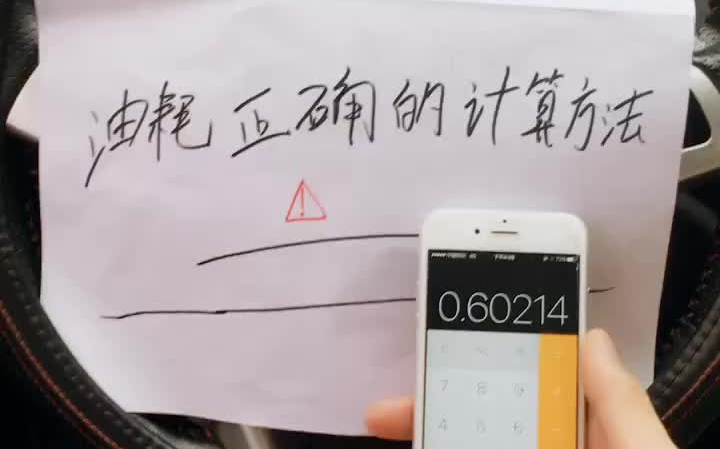 油耗正确的计算方法
!
0.60214
7 8 9
4 5 6